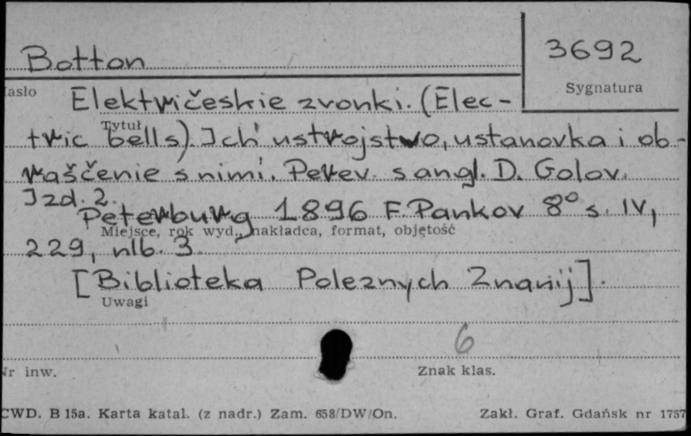 Botton
3692
asło
Sygnatura
Električeskie zvonki. (Elec-
Tytuł
tric bells). Ich ustrojstvo, ustanovka i ob-
raščenie s nimi. Perev. s angl. D. Golov.
Izd. 2.
Peterburg 1896 F. Pankov 8° s. IV,
Miejsce, rok wyd., nakładca, format, objętość
229, nlb. 3.
[Biblioteka Poleznych Znanij].
Uwagi
6
r inw.
Znak klas.
CWD. B 15a. Karta katal. (z nadr.) Zam. 658/DW/On.
Zakł. Graf. Gdańsk nr 1757